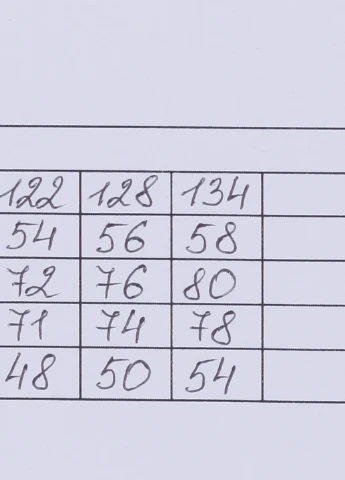 122 128 134
54 56 58
72 76 80
71 74 78
48 50 54